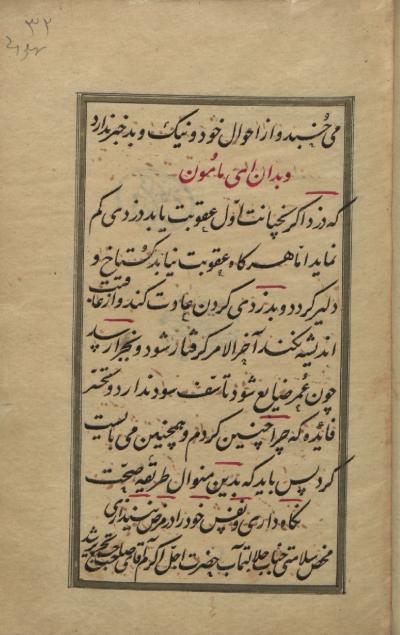 ۳۲
می خسبد و از احوال خود و نیک و بد خبر ندارد
و بدان ای مامون
که دزد اگر بخیانت اول عقوبت یابد دزدی کم
نماید اما هر گاه عقوبت نیابد گستاخ و
دلیر گردد و بدزدی کردن عادت کند و از عاقبت
اندیشه نکند آخر الامر گرفتار شود و بجزا رسد
چون عمر ضایع شود تاسف سود ندارد و تحسر
فایده که چرا چنین کردم و همچنین می بایست
کرد پس باید که بدین منوال طریقه صحت
نگاه داری و نفس خود را در مرض نیندازی
محض سلامتی جناب جلالتمآب حضرت اجل اکرم آقای صاحب تحریر شد